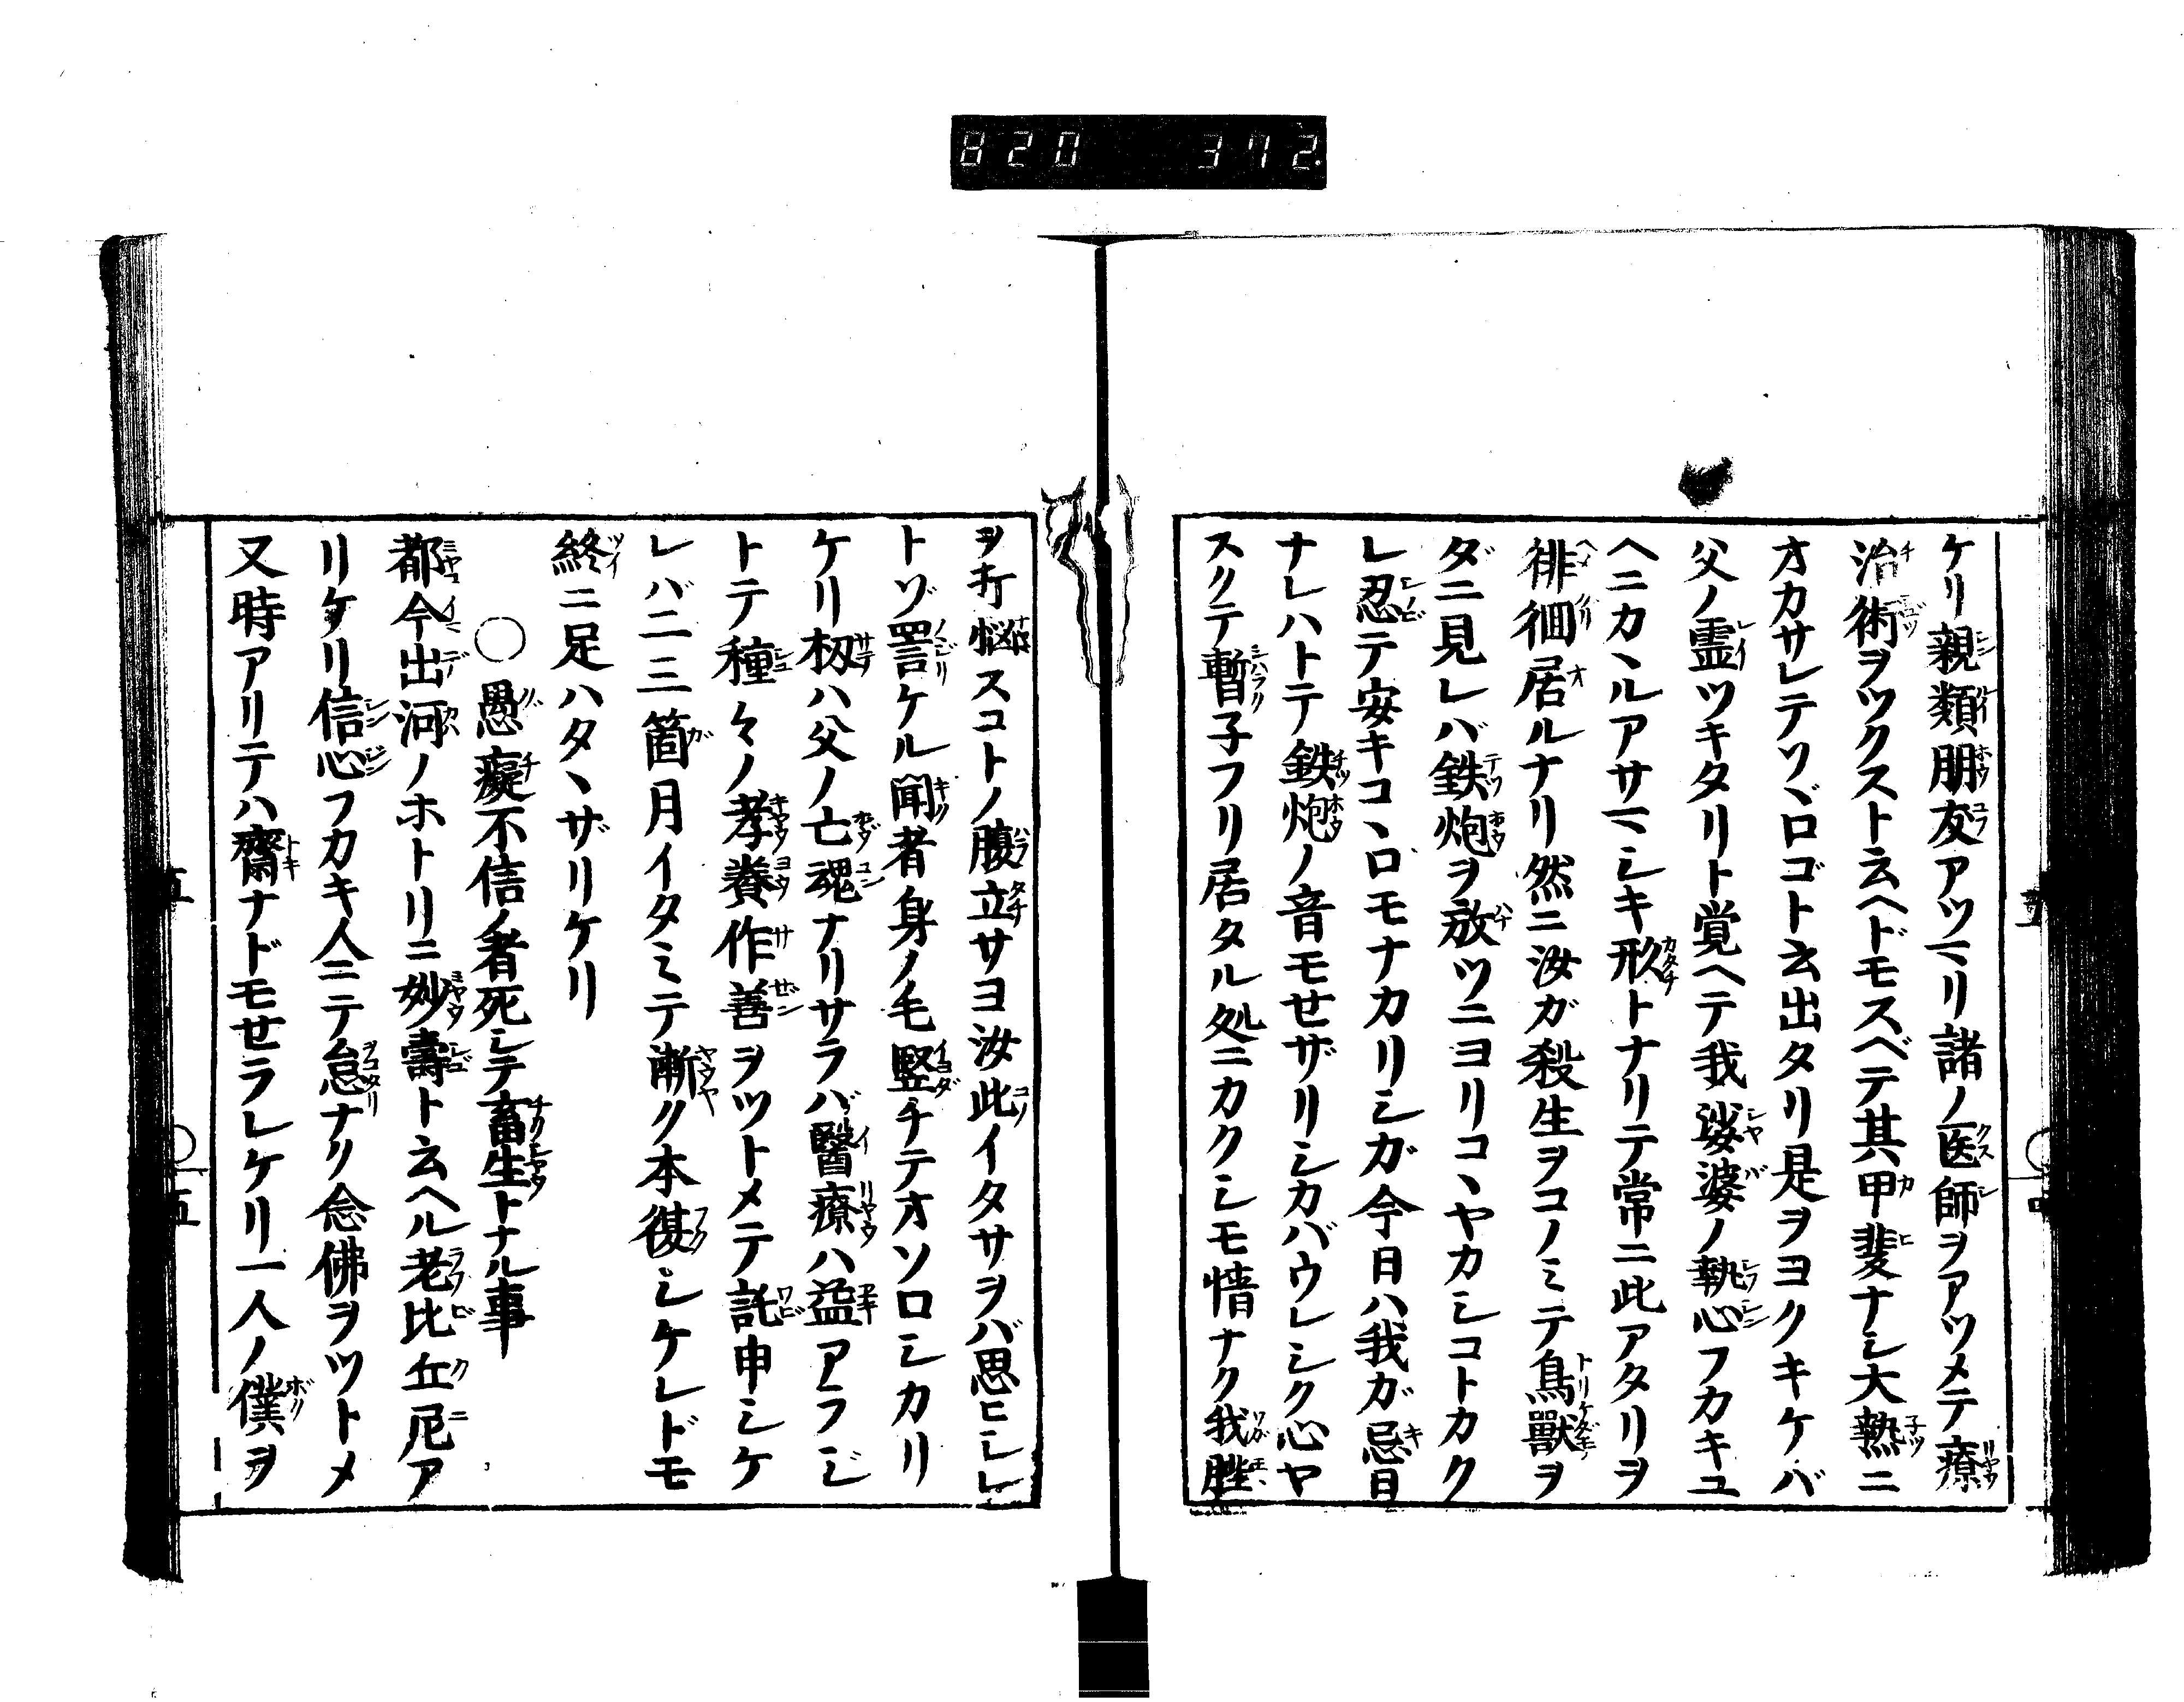 820 372.
ケリ親類朋友アツマリ諸ノ医師ヲアツメテ療
治術ヲツクスト云ヘドモスベテ其甲斐ナシ大熱ニ
オカサレテソヾロゴト云出タリ是ヲヨクキケバ
父ノ霊ツキタリト覚ヘテ我娑婆ノ執心フカキユ
ヘニカヽルアサマシキ形トナリテ常ニ此アタリヲ
徘徊居ルナリ然ニ汝ガ殺生ヲコノミテ鳥獸ヲ
ダニ見レバ鉄炮ヲ放ツニヨリコヽヤカシコトカク
レ忍テ安キコヽロモナカリシガ今日ハ我ガ忌日
ナレハトテ鉄炮ノ音モせザリシカバウレシク心ヤ
スクテ暫子フリ居タル処ニカクシモ情ナク我脞
ヲ打悩スコトノ腹立サヨ汝此イタサヲバ思ヒシレ
トゾ詈ケル聞者身ノ毛竪チテオソロシカリ
ケリ扨ハ父ノ亡魂ナリサラバ醫療ハ益アラジ
トテ種々ノ孝養作善ヲツトメテ託申シケ
レバ二三箇月イタミテ漸ク本復シケレドモ
終ニ足ハタヽザリケリ
○愚癡不信ノ者死シテ畜生トナル事
都今出河ノホトリニ妙壽ト云ヘル老比丘尼ア
リケリ信心フカキ人ニテ怠ナク念佛ヲツトメ
又時アリテハ齋ナドモせラレケリ一人ノ僕ヲ
五
五